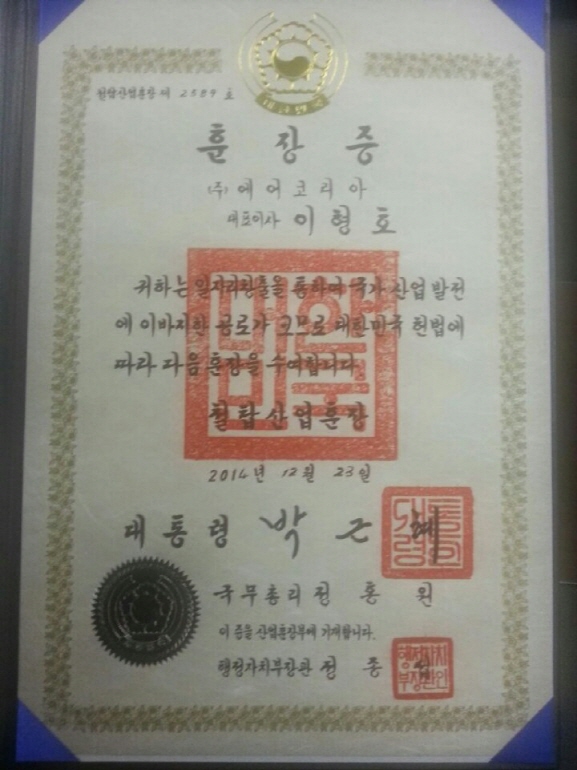 철탑산업훈장 제 2589 호
훈장증
(주) 에어코리아
대표이사 이형호
귀하는 일자리창출을 통하여 국가 산업 발전
에 이바지한 공로가 크므로 대한민국 헌법에
따라 다음 훈장을 수여합니다
철탑산업훈장
2014년 12월 23일
대통령 박근혜
국무총리 정홍원
이 증을 산업훈장부에 기재합니다.
행정자치부장관 정종섭